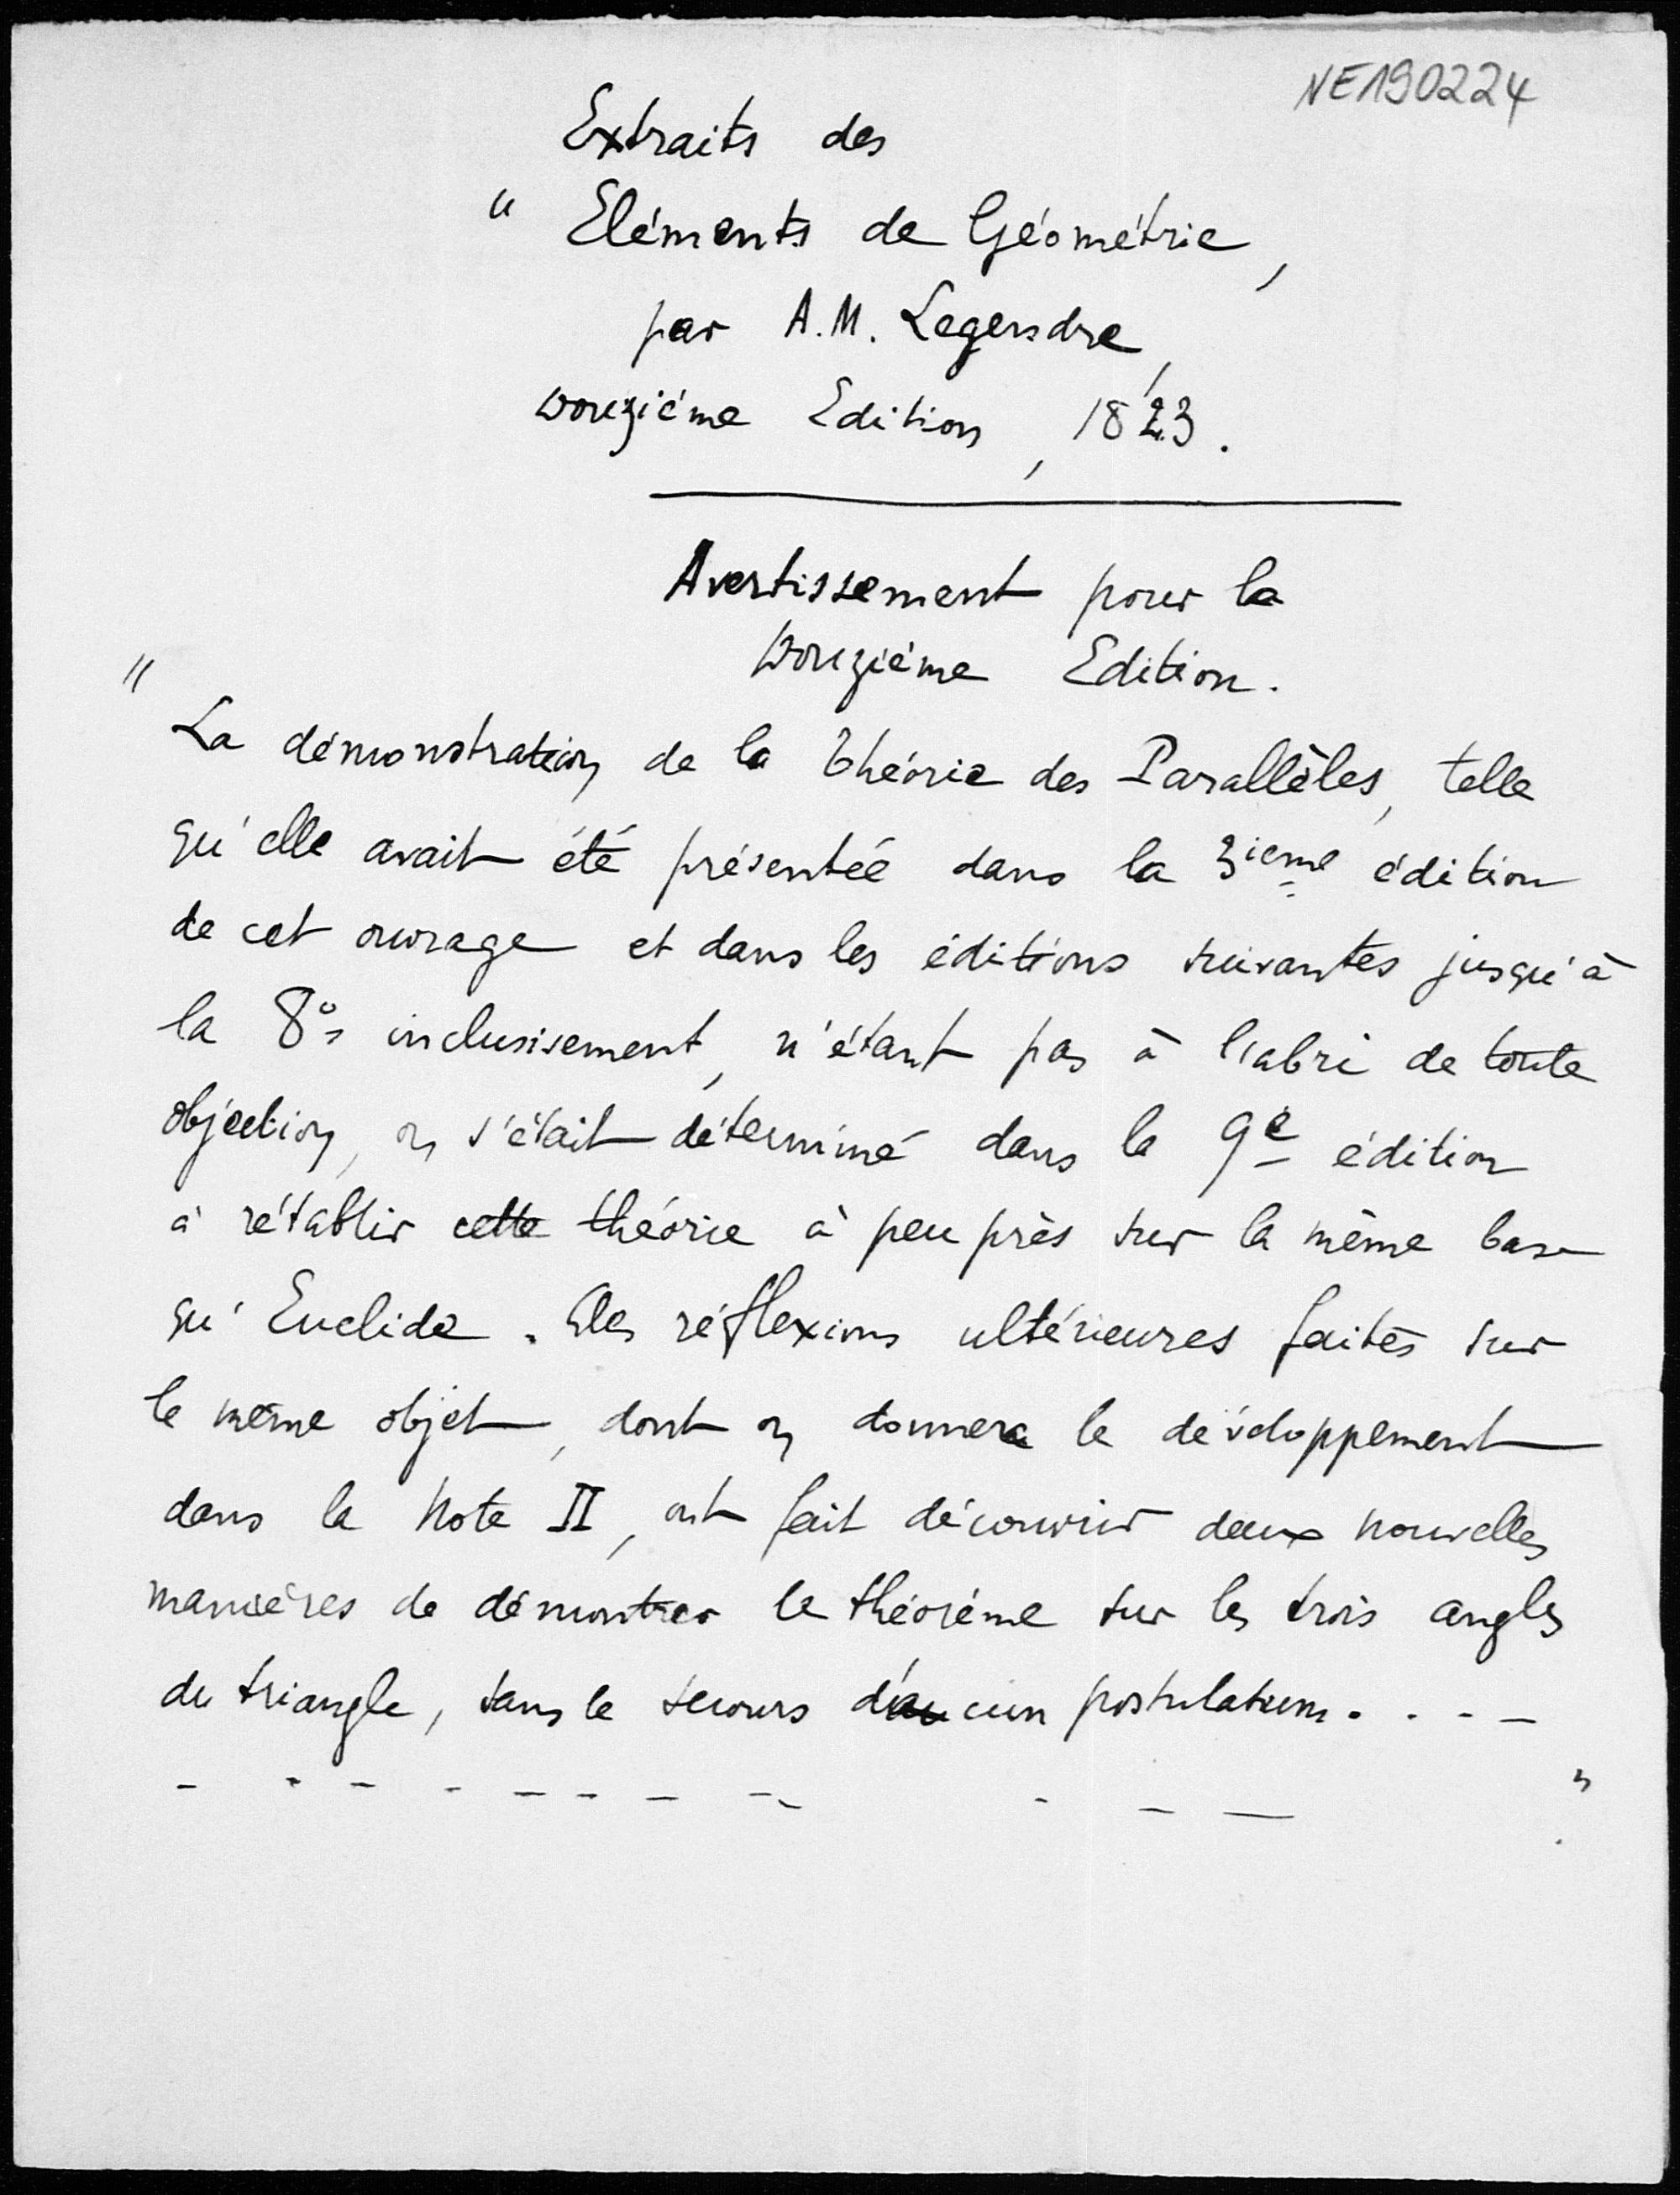 NE190224
Extraits des
" Eléments de Géométrie,
par A.M. Legendre,
Douzième Edition, 1823.
Avertissement pour la
Douzième Edition.
"
La démonstration de la théorie des Parallèles, telle
qu'elle avait été présentée dans la 3ieme édition
de cet ouvrage et dans les éditions suivantes jusqu'à
la 8e inclusivement, n'étant pas à l'abri de toute
objection, on s'était déterminé dans la 9e édition
à rétablir cette théorie à peu près sur la même base
qu'Euclide. Des réflexions ultérieures faites sur
le même objet, dont on donnera le développement
dans la Note II, ont fait découvrir deux nouvelles
manières de démontrer le théorème sur les trois angles
du triangle, sans le secours d'aucun postulatum. . . - -
- - - - - - - - - - - "